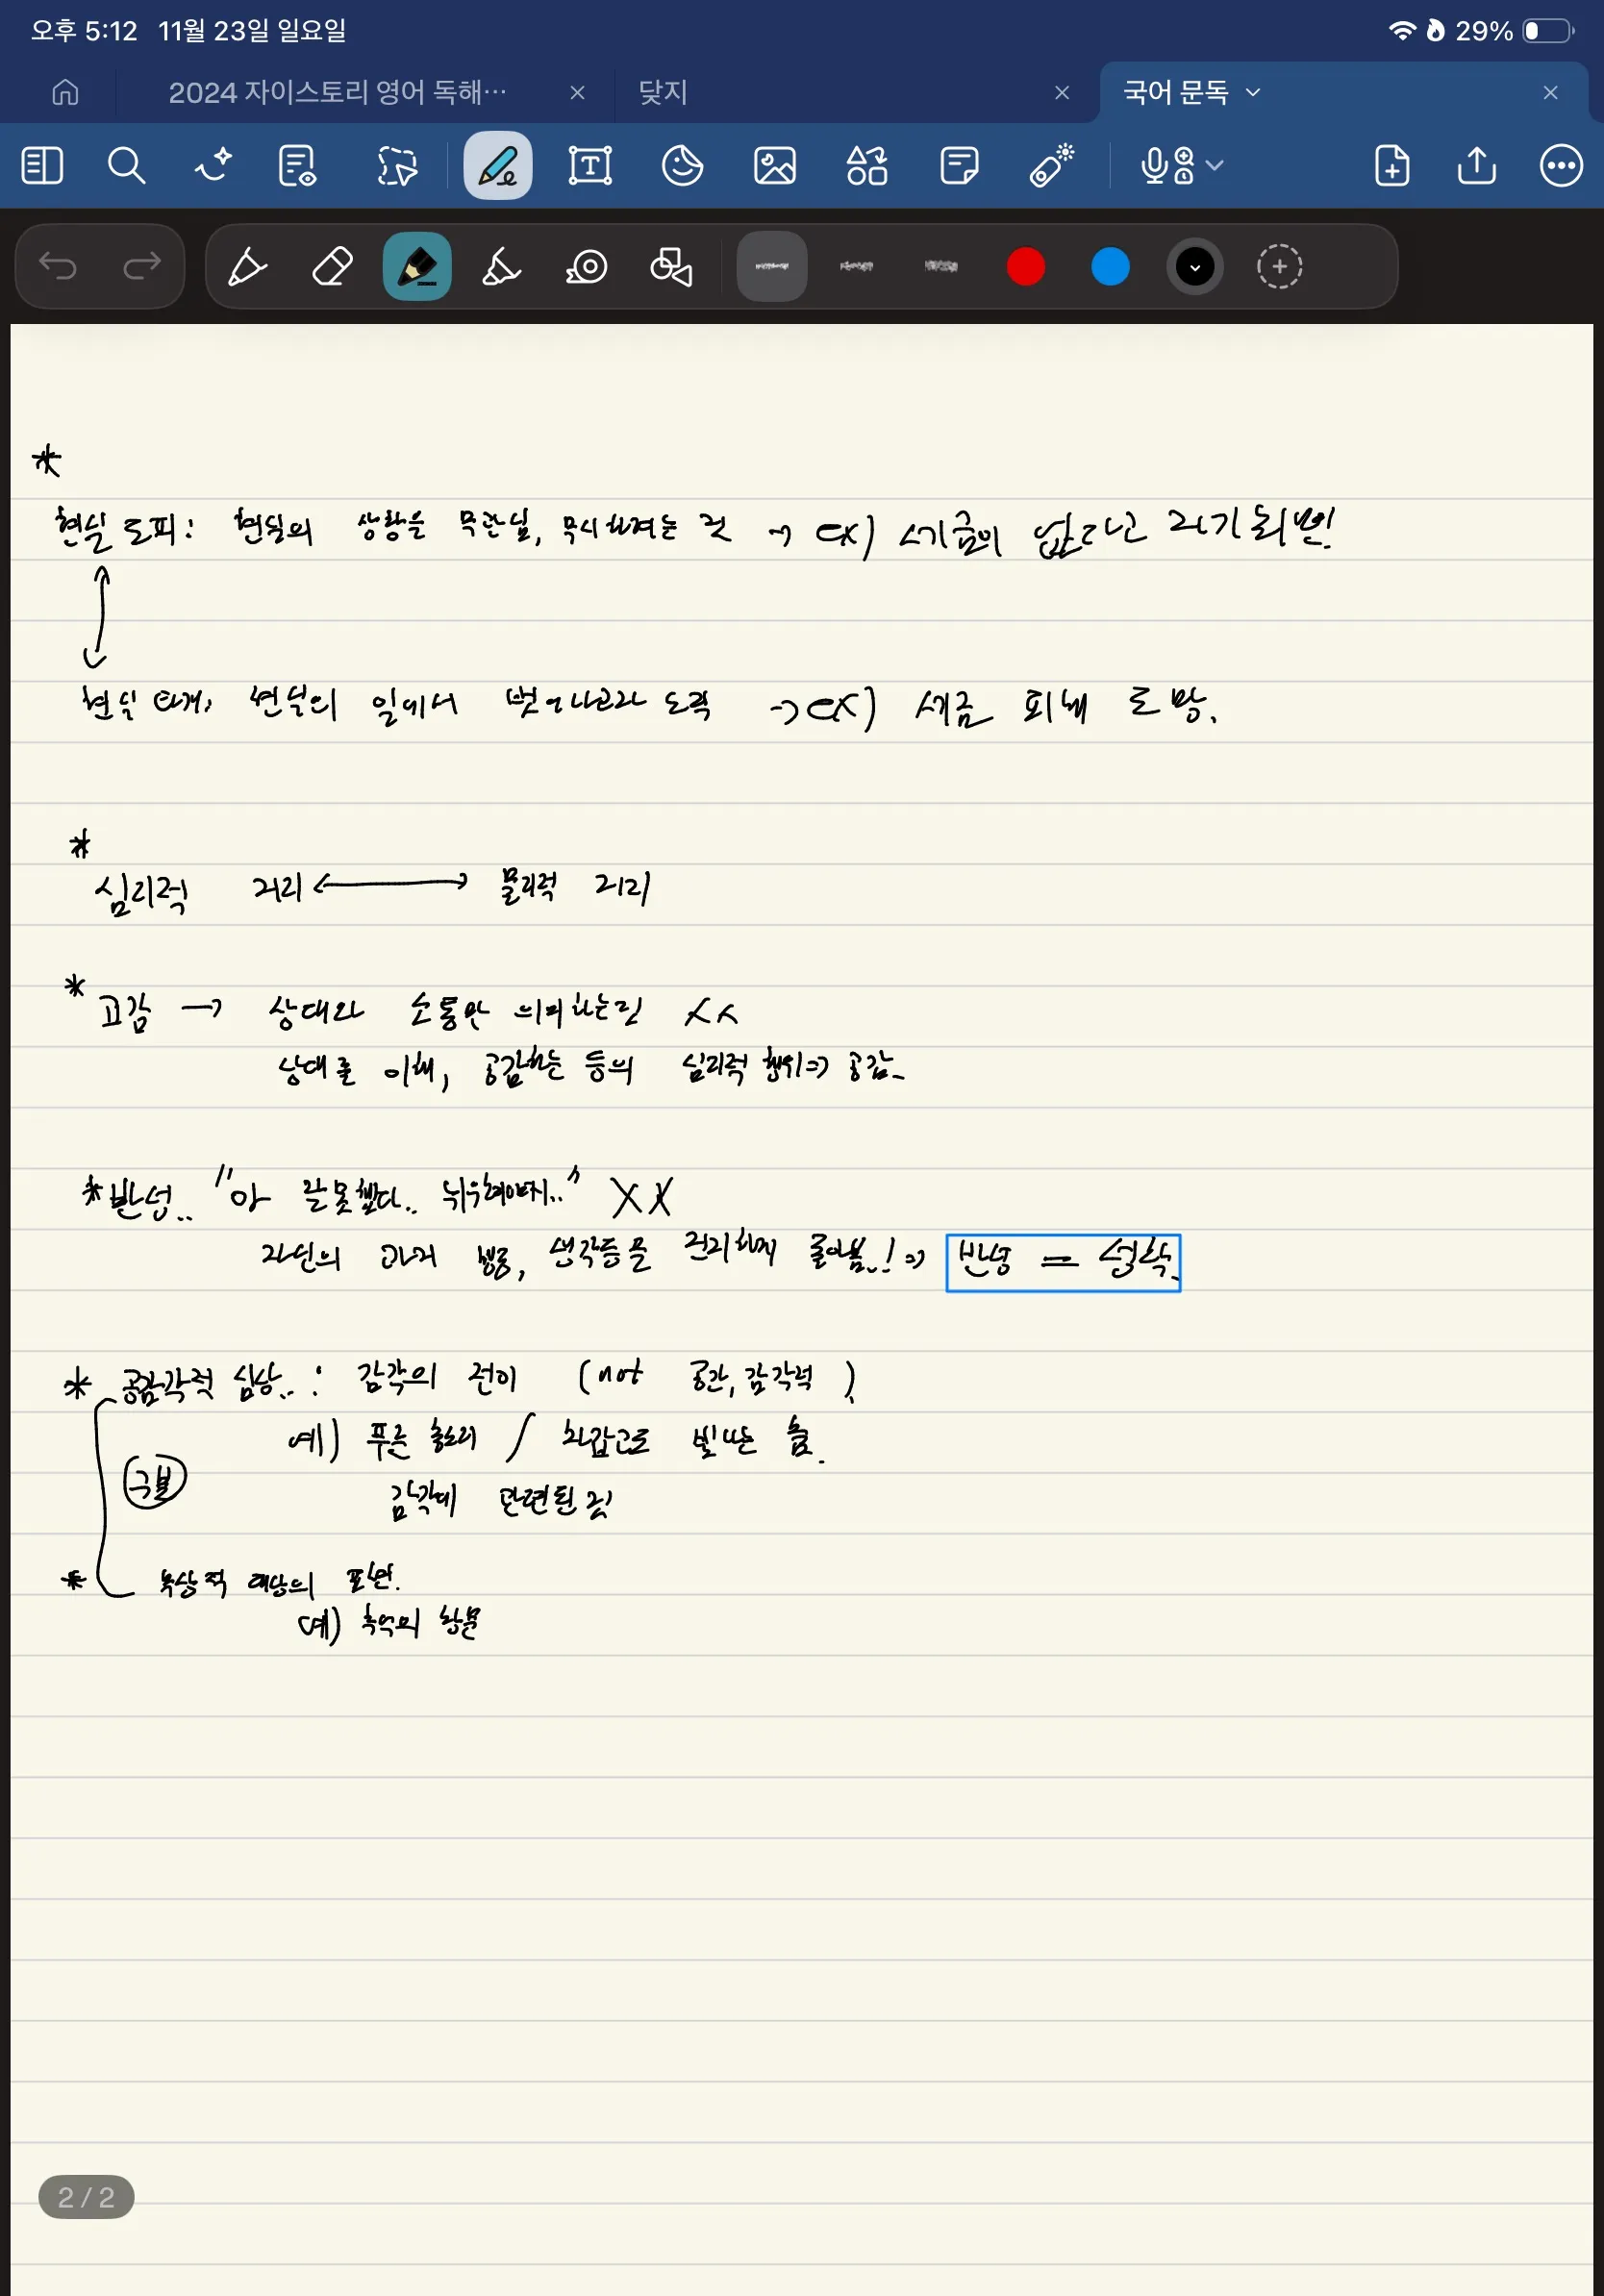 오후 5:12 11월 23일 일요일 29%
2024 자이스토리 영어 독해… 닺지 국어 문독
*
현실 도피: 현실의 상황을 무관심, 무시하려는 것 → ex) 세금이 없다고 자기최면!
현실 타개, 현실의 일에서 벗어나고자 노력 → ex) 세금 피해 도망.
*
심리적 거리 ↔ 물리적 거리
* 교감 → 상대와 소통만 의미하는 것 XX
상대를 이해, 공감하는 등의 심리적 행위 ⇒ 공감.
* 반성.. "아 잘못했다.. 뉘우쳐야지.." XX
자신의 과거 행동, 생각등을 진지하게 돌아봄..! ⇒ 반성 = 성찰.
* 공감각적 심상..: 감각의 전이 (not 공간, 감각적)
예) 푸른 종소리 / 차갑고도 빛나는
구별 감각에 관련된 것
* 추상적 대상의 표현.
예) 추억의 창문
2 / 2